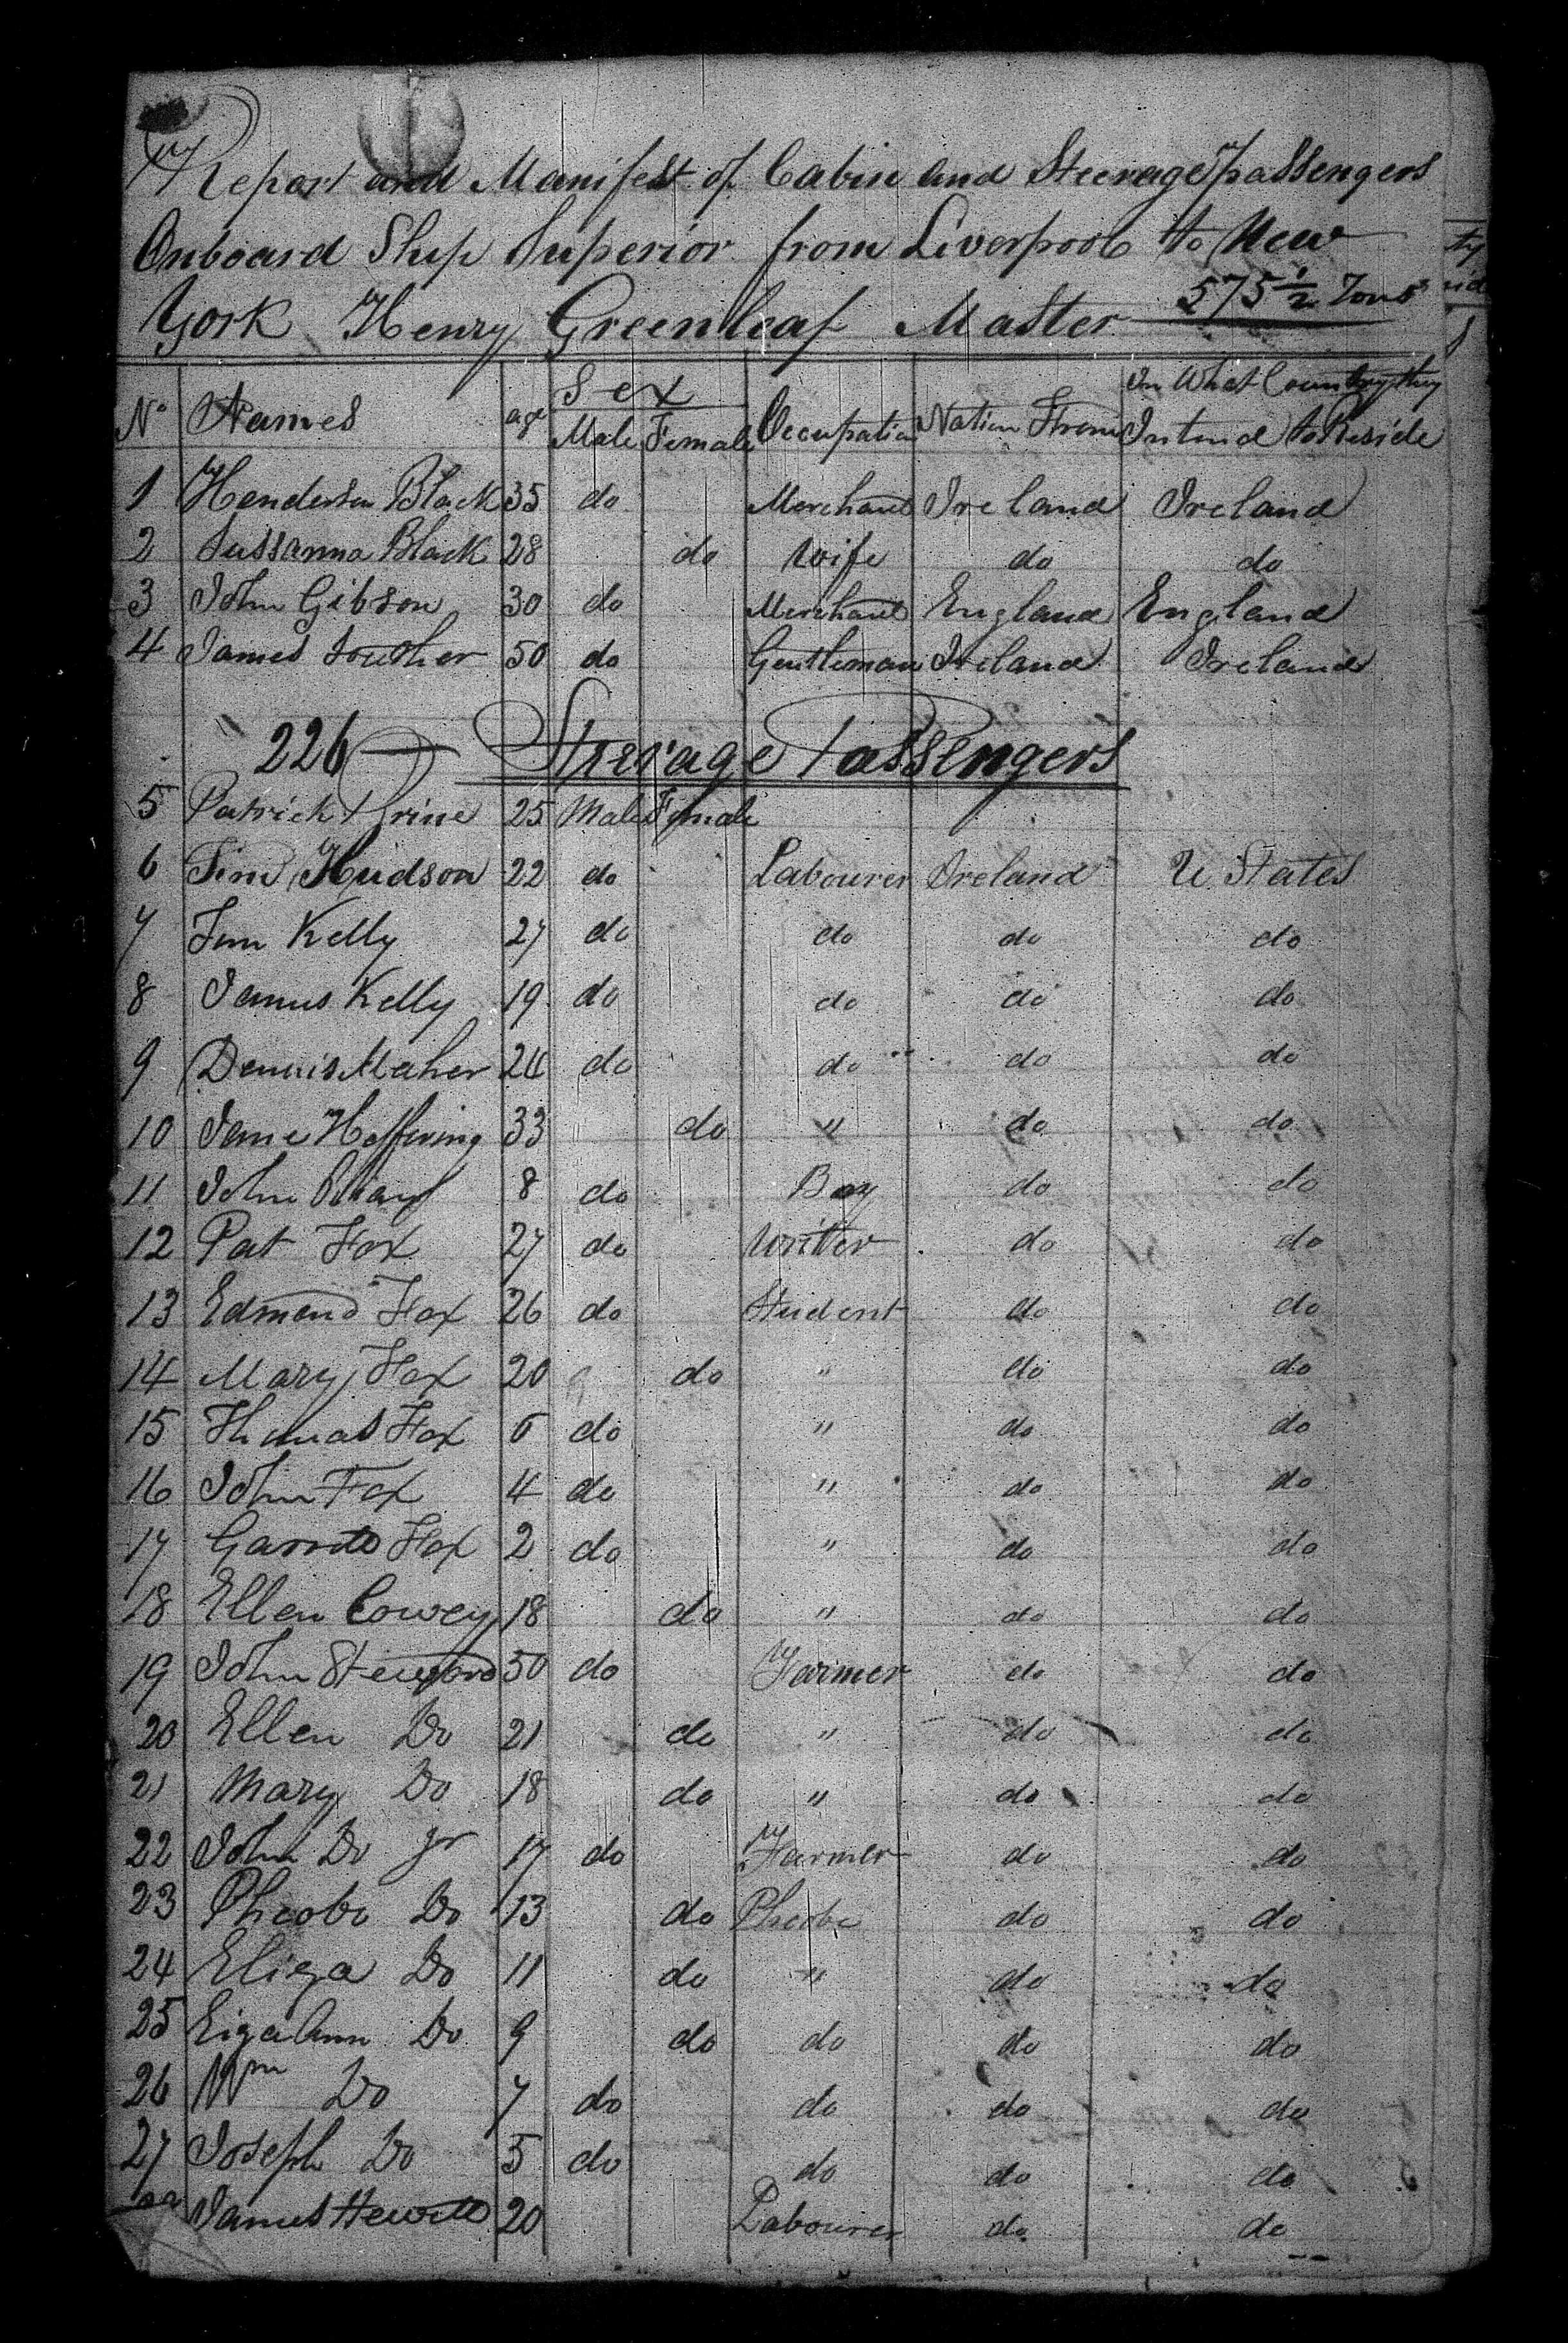 Report and Manifest of Cabin and Steerage passengers
Onboard Ship Superior from Liverpool to New
York Henry Greenleaf Master 575 1/2 Tons
No Names age Sex Male Female Occupation Nation From In What Country they Intend to Reside
1 Henderson Black 35 do Merchant Ireland Ireland
2 Sussanna Black 28 do Wife do do
3 John Gibson 30 do Merchant England England
4 James Souther 50 do Gentleman Ireland Ireland
226 Steerage Passengers
5 Patrick Prine 25 Male Female
6 Hudson 22 do Labourer Ireland U States
7 Kelly 27 do do do do
8 James Kelly 19 do do do do
9 Dennis Maher 24 do do do do
10 Jane Heffering 33 do " do do
11 John 8 do Boy do do
12 Pat Fox 27 do Writer do do
13 Edmend Fox 26 do Student do do
14 Mary Fox 20 do " do do
15 Thomas Fox 6 do " do do
16 John Fox 4 do " do do
17 Fox 2 do " do do
18 Ellen Cowey 18 do " do do
19 John 50 do Farmer do do
20 Ellen Do 21 do " do do
21 Mary Do 18 do " do do
22 John Do Jr 17 do Farmer do do
23 Pheobe Do 13 do Pheobe do do
24 Eliza Do 11 do " do do
25 Eiza Ann Do 9 do do do do
26 Wm Do 7 do do do do
27 Joseph Do 5 do do do do
James Hewitt 20 Labourer do do